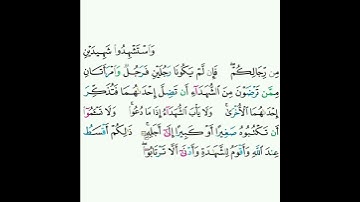 وَٱسْتَشْهِدُوا۟ شَهِيدَيْنِ
مِن رِّجَالِكُمْ ۖ فَإِن لَّمْ يَكُونَا رَجُلَيْنِ فَرَجُلٌ وَٱمْرَأَتَانِ
مِمَّن تَرْضَوْنَ مِنَ ٱلشُّهَدَآءِ أَن تَضِلَّ إِحْدَىٰهُمَا فَتُذَكِّرَ
إِحْدَىٰهُمَا ٱلْأُخْرَىٰ ۚ وَلَا يَأْبَ ٱلشُّهَدَآءُ إِذَا مَا دُعُوا۟ ۚ وَلَا تَسْـَٔمُوٓا۟
أَن تَكْتُبُوهُ صَغِيرًا أَوْ كَبِيرًا إِلَىٰٓ أَجَلِهِۦ ۚ ذَٰلِكُمْ أَقْسَطُ
عِندَ ٱللَّهِ وَأَقْوَمُ لِلشَّهَٰدَةِ وَأَدْنَىٰٓ أَلَّا تَرْتَابُوٓا۟ ۖ